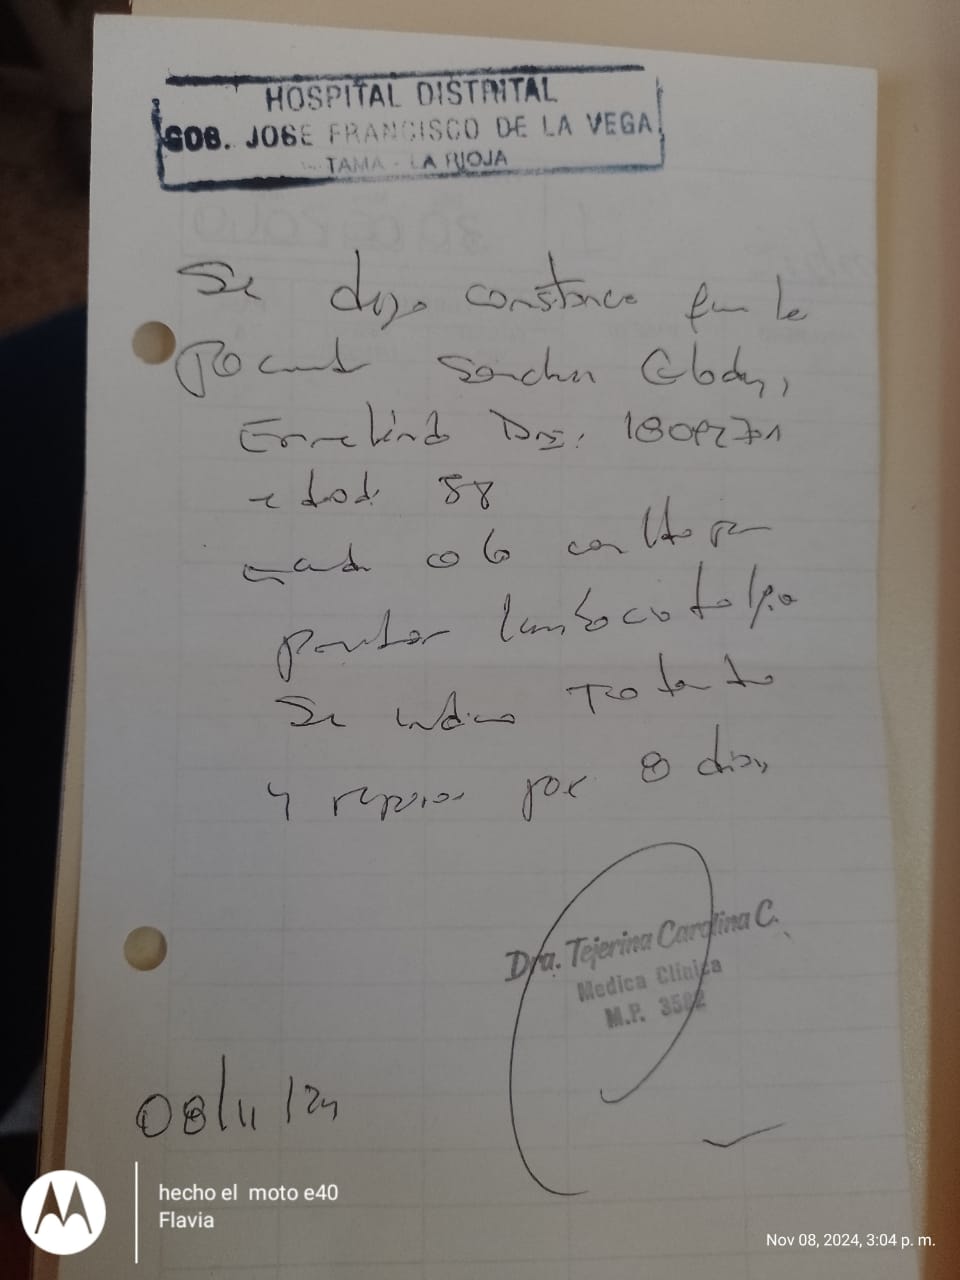 HOSPITAL DISTRITAL
GOB. JOSE FRANCISCO DE LA VEGA
TAMA - LA RIOJA
Se deja constancia que la
Paciente Sanchez Gladys
Ermelinda DNI: 
edad 58
acude a la consulta por
presentar lumbociatalgia
Se indica tratamiento
y reposo por 8 dias
Dra. Tejerina Carolina C.
Medica Clinica
M.P. 3582
08/11/24
hecho el moto e40
Flavia
Nov 08, 2024, 3:04 p. m.